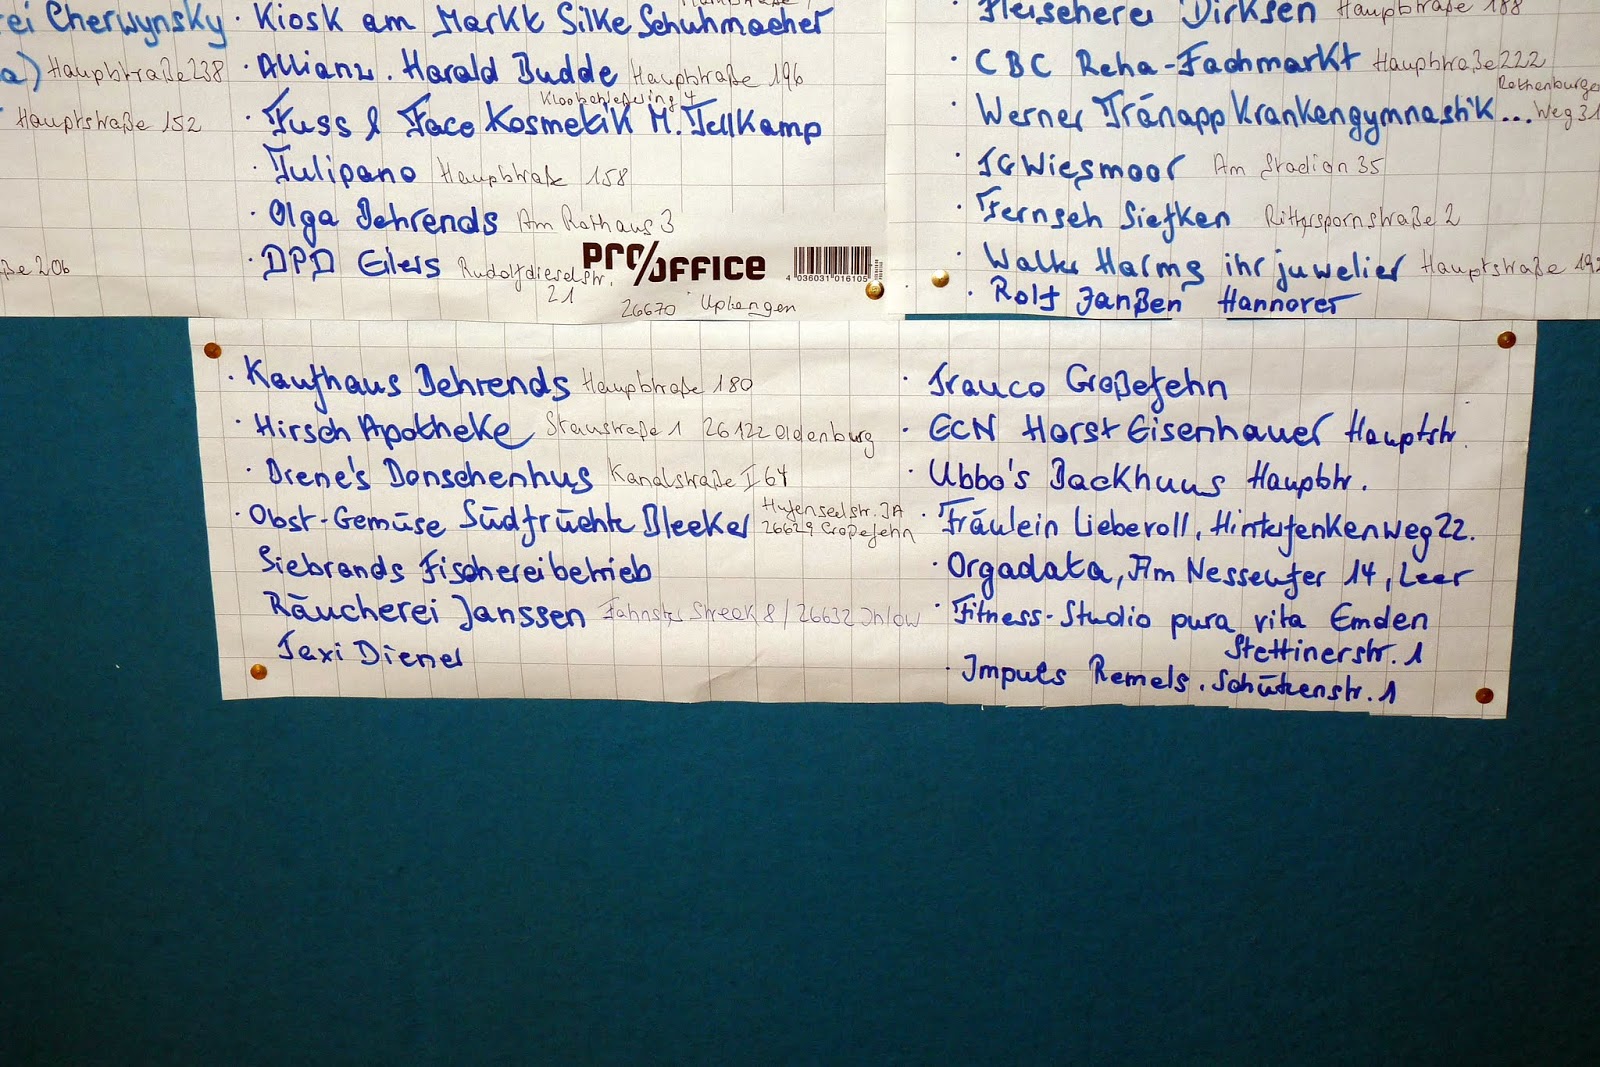 ei Cherwynsky
a) Hauptstraße 238
Hauptstraße 152
ße 206
· Kiosk am Markt Silke Schuhmacher
· Allianz. Harald Budde Hauptstraße 196
· Fuss & Face Kosmetik M. Tellkamp
· Tulipano Hauptstraße 158
· Olga Behrends Am Rathaus 3
· DPD Eilers Rudolfdieselstr.
21
26670 Uplengen
PRO/OFFICE
4 036031 016105
Fleischerei Dirksen Hauptstraße 188
· CBC Reha-Fachmarkt Hauptstraße 222
· Werner Tränapp Krankengymnastik... Rothenburger
Weg 31
· TG Wiesmoor Am Stadion 35
· Fernseh Siefken Ritterspornstraße 2
· Walter Harms ihr juwelier Hauptstraße 192
· Rolf Janßen Hannover
· Kaufhaus Behrends Hauptstraße 180
· Hirsch Apotheke Staustraße 1 26122 Oldenburg
· Brene's Bonschenhus Kanalstraße I 64
· Obst-Gemüse Südfrüchte Bleeker
26629 Großefehn
Siebrands Fischereibetrieb
Räucherei Janssen 8 / 26632 Ihlow
Taxi Diener
· Trauco Großefehn
· ECN Horst Eisenhauer Hauptstr.
· Ubbo's Backhuus Hauptstr.
· Fräulein Lieberoll, Hinterfenkenweg 22.
· Orgadata, Am Nesseufer 14, Leer
· Fitness-Studio pura vita Emden
Stettinerstr. 1
· Impuls Remels. Schützenstr. 1